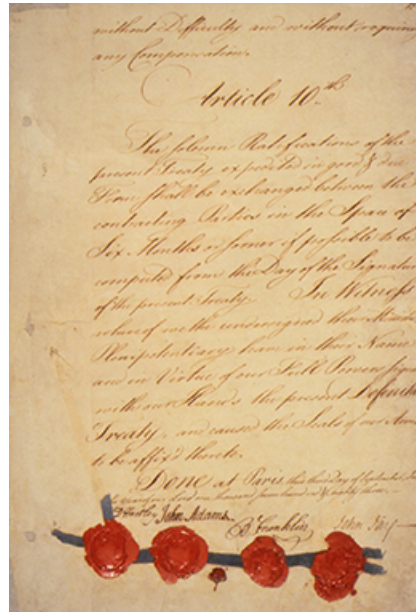 without Difficulty and without requirin
any Compensation.
Article 10th
The solemn Ratifications of the
present Treaty expedited in good & due
Form shall be exchanged between the
contracting Parties in the Space of
Six Months or sooner if possible to be
computed from the Day of the Signature
of the present Treaty. In Witness
whereof we the undersigned their Ministers
Plenipotentiary have in their Name
and in Virtue of our Full Powers signed
with our Hands the present Definitive
Treaty, and caused the Seals of our Arms
to be affix'd thereto.
Done at Paris, this third Day of September, In
the Year of our Lord one thousand seven hundred & eighty three.
D Hartley John Adams. B Franklin John Jay